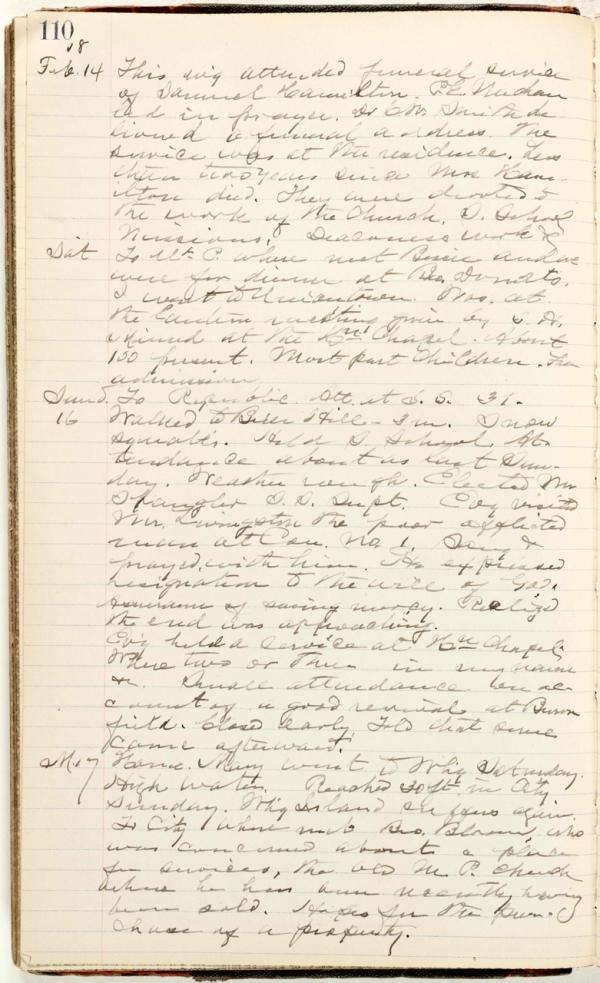 110
18
Feb. 14 This evg attended funeral service
of Samuel Hamilton. P.E. Meehan
led in prayer. Dr. C.W. Smith de-
livered a funeral address. The
service was at the residence. Less
than two years since Mrs Ham-
ilton died. They were devoted to
the work of the Church, S. School
Missions, Deaconess work &
Sat To Mt. P. where met Bessie and we
were for dinner at Bro. Donats.
I went to Uniontown. Was at
the Lantern meeting given by S. H.
at the Chapel. About
150 present. Most part Children. Free
admission
Sund. To Republic. Att. at S. S. 31.
16 Walked to Buer Hill - 3 m. Snow
squalls. Held S. School. At-
tendance about as last Sun-
day. Weather rough. Elected Mr
Spangler S.S. Supt. Evg visited
Mr. Livingston the poor afflicted
man at Con. No. 1. Sang &
prayed with him. He expressed
resignation to the will of God.
Assurance of saving mercy. Realized
the end was approaching.
Ev'g held a service at Chapel.
Where two or three in my name
&c. Small attendance on ac-
count of a good revival at
field. Closed early. Told that some
came afterward.
M. 17 Home. Mary went to Whg Saturday.
High water. Reached 40 ft. in City
Sunday. Whg Island suffers again.
To City where met Bro. Bloom, who
was concerned about a place
for services, the old M. P. Church
where he has been recently having
been sold. Hopes for the pur-
chase of a property.